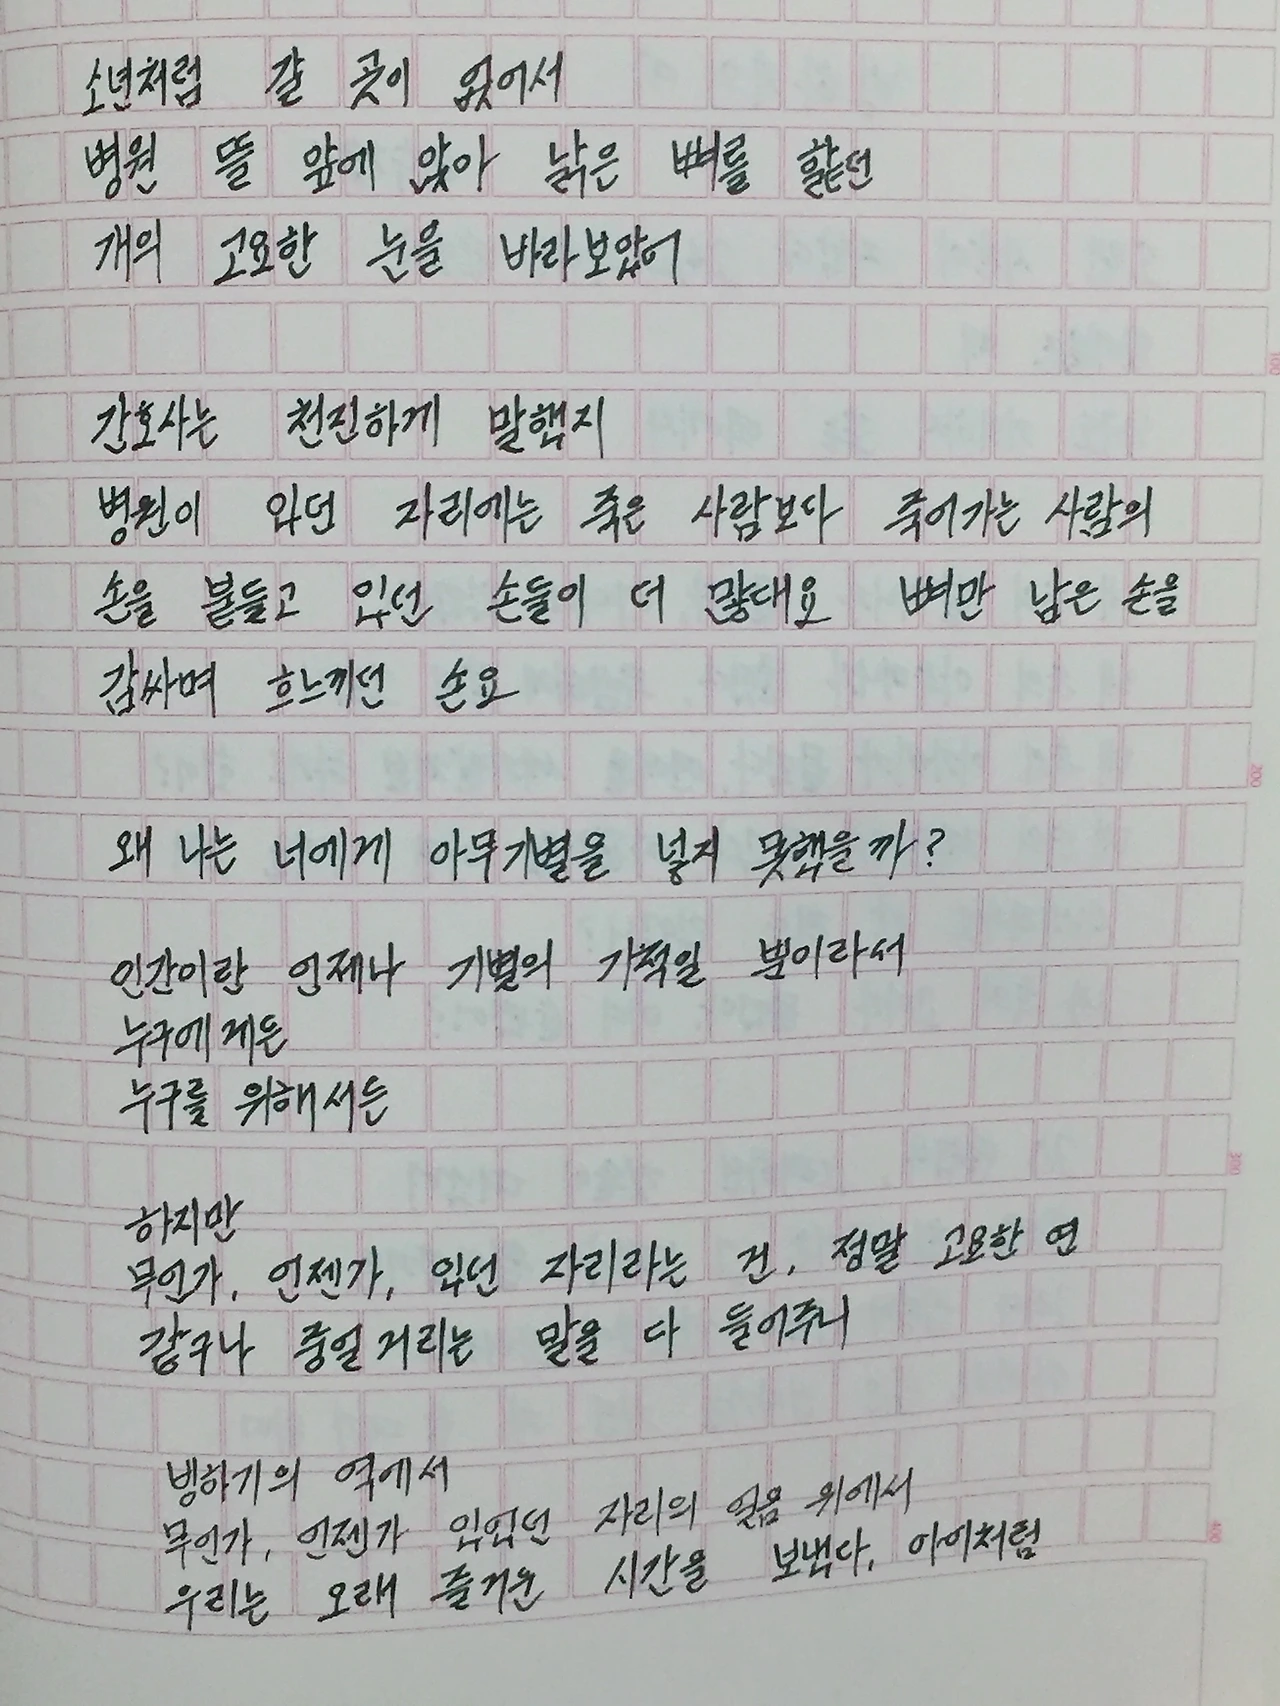 소년처럼 갈 곳이 없어서
병원 뜰 앞에 앉아 낡은 뼈를 핥던
개의 고요한 눈을 바라보았어
간호사는 천진하게 말했지
병원이 있던 자리에는 죽은 사람보다 죽어가는 사람의
손을 붙들고 있던 손들이 더 많대요 뼈만 남은 손을
감싸며 흐느끼던 손요
왜 나는 너에게 아무 기별을 넣지 못했을까?
인간이란 언제나 기별의 기척일 뿐이라서
누구에게든
누구를 위해서든
하지만
무언가, 언젠가, 있던 자리라는 건, 정말 고요한 연
같구나 중얼거리는 말을 다 들어주니
빙하기의 역에서
무언가, 언젠가 있었던 자리의 얼음 위에서
우리는 오래 즐거운 시간을 보냈다, 아이처럼